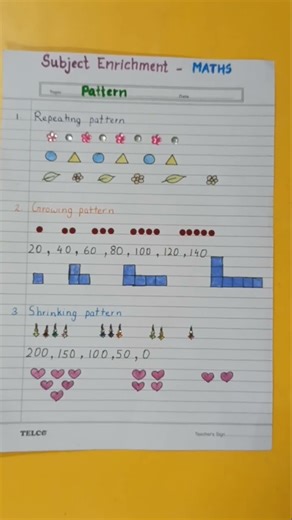 Subject Enrichment - MATHS
Pattern
Date
1. Repeating pattern
2. Growing pattern
20, 40, 60, 80, 100, 120, 140
3. Shrinking pattern
200, 150, 100, 50, 0
TELCO Teacher's Sign